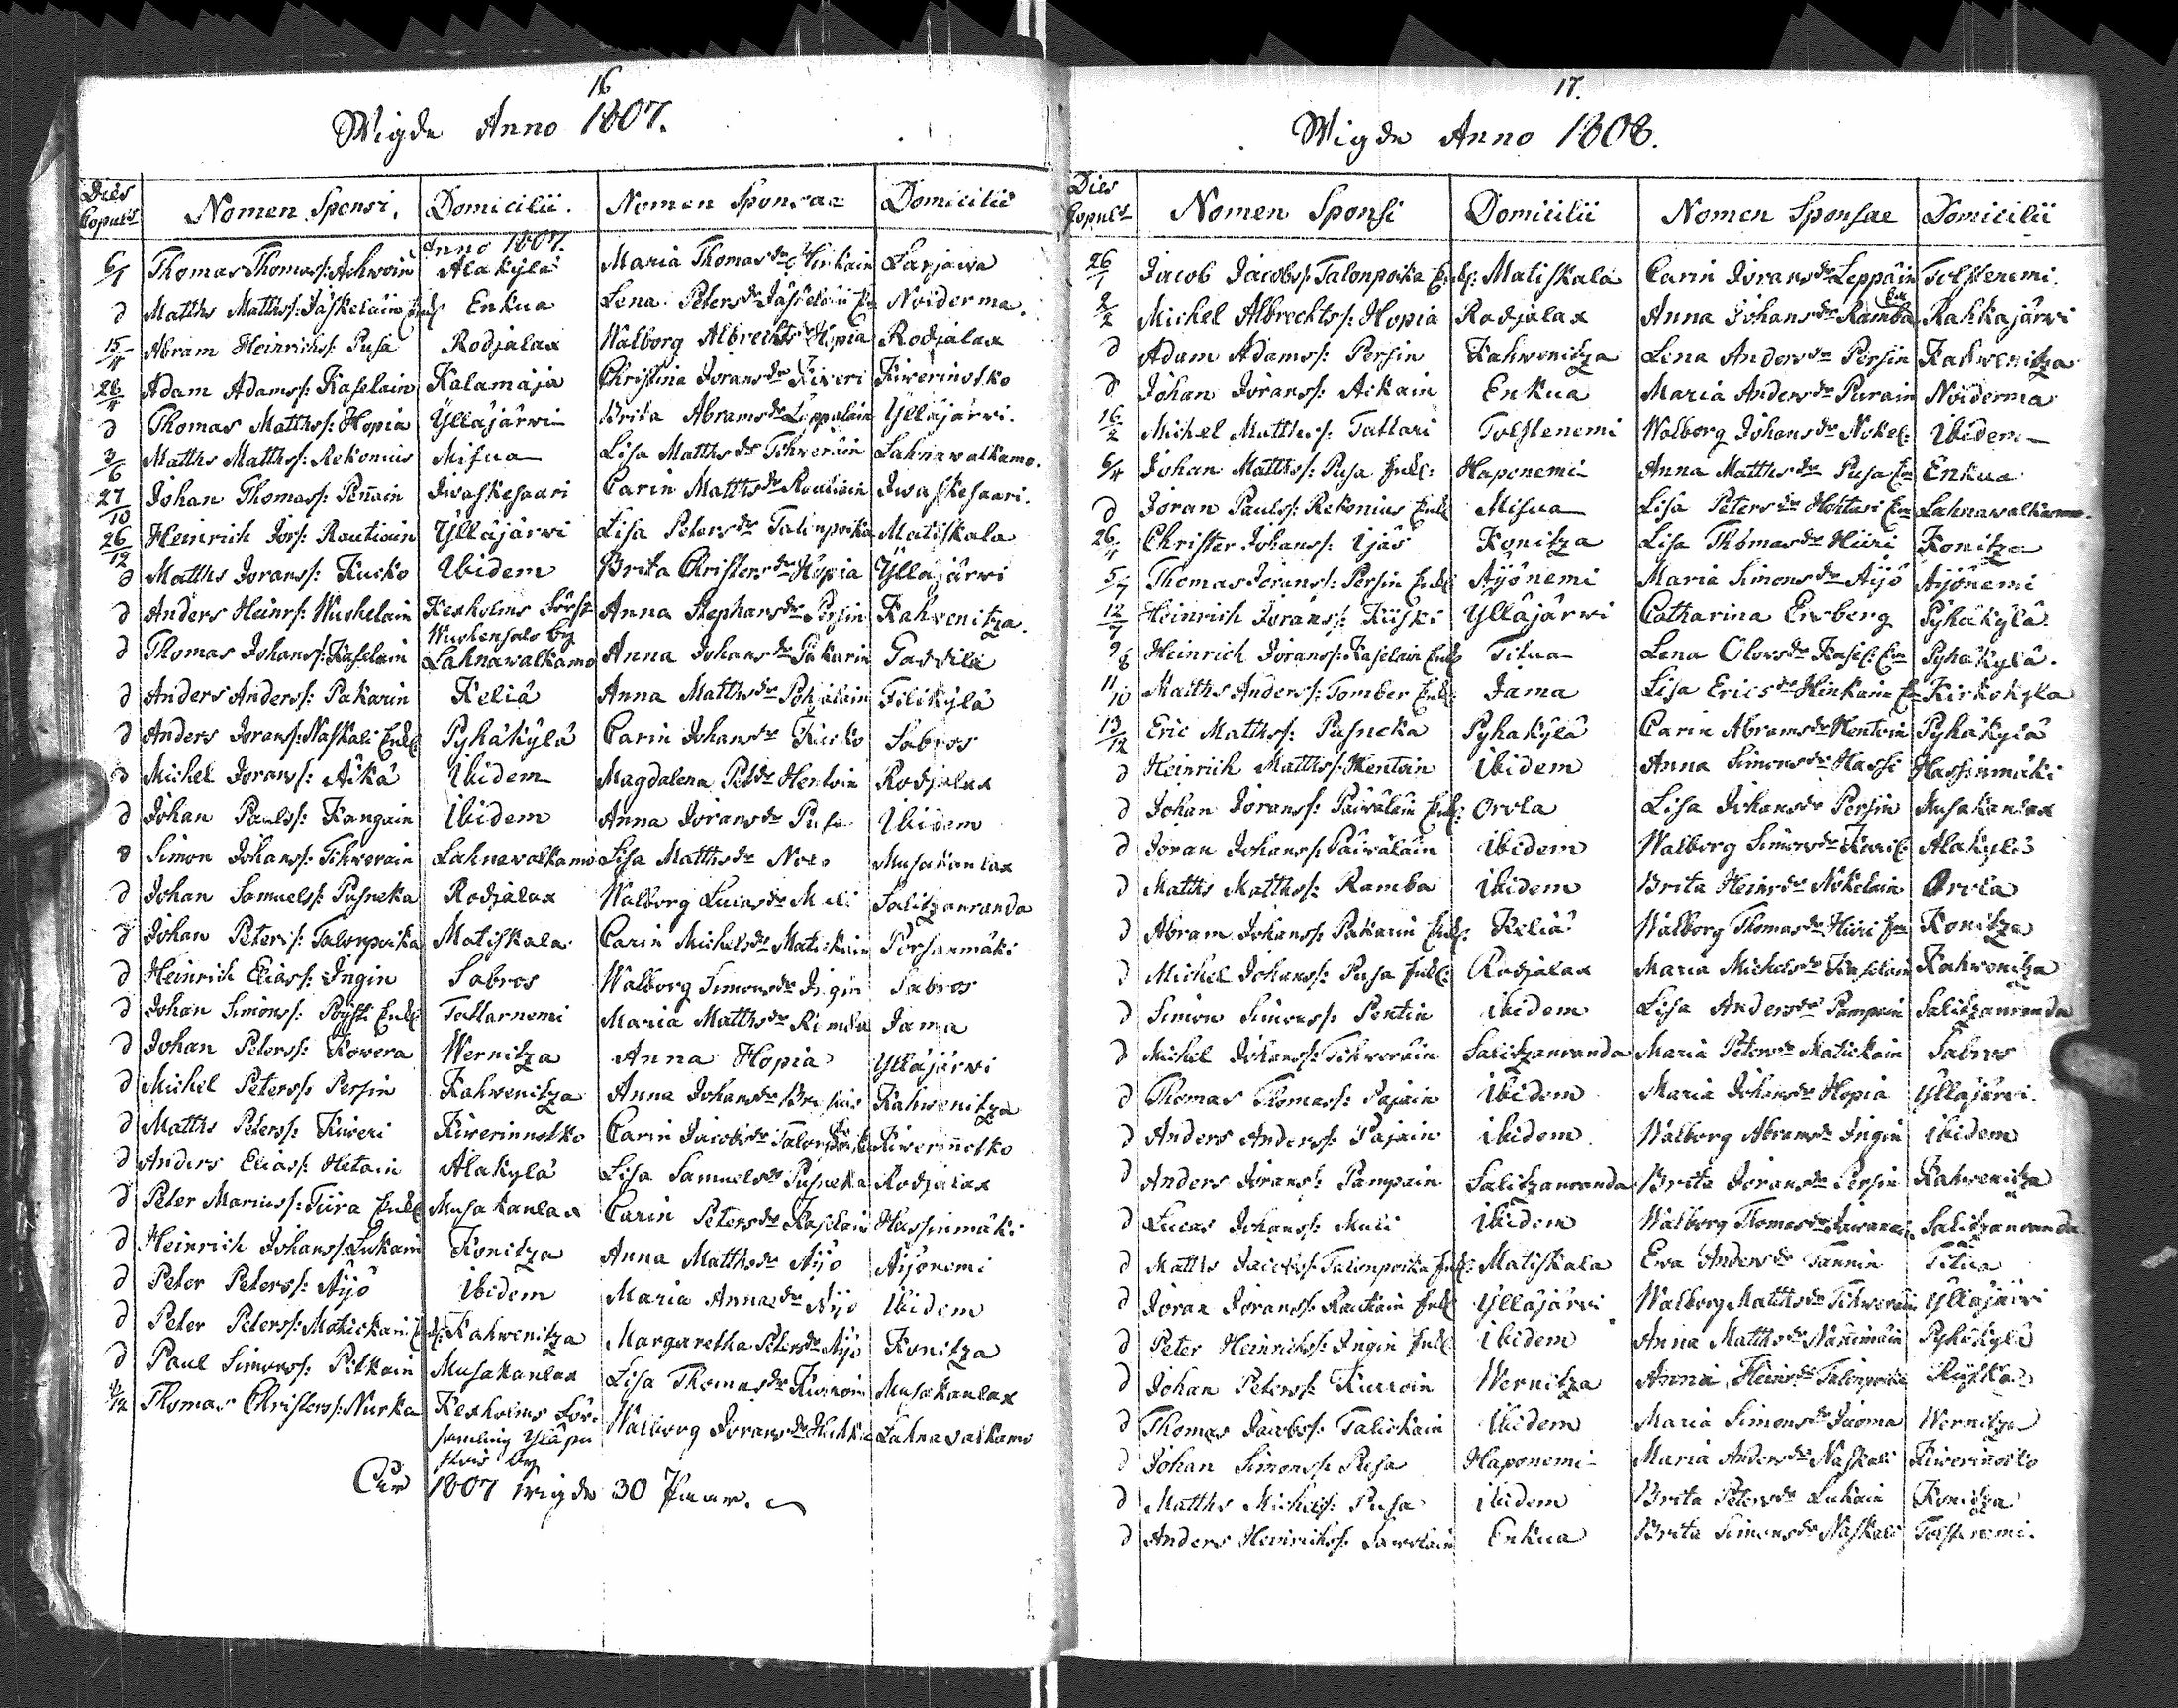 16
Wigde Anno 1807.
Dies Copul: Nomen Sponsi. Domicilii. Nomen Sponsae Domicilii
Anno 1807.
6/1 Thomas Thomass: Achwoin Alakylä Maria Thomasdr Hinkain Larjawa
d Matths Matthss: Jäskeläin Enkl: Enkua Lena Petersdr Jäskeläin En Noiderma.
15/4 Abram Heinrichs: Pusa Rodjalax Walborg Albrechtsdr Hopia Rodjalax
26/4 Adam Adamss: Kaselain Kalamaja Christina Joransdr Kiweri Kiwerinotko
d Thomas Matthss: Hopia Ylläjärwi Brita Abramsdr Leppälain Ylläjärwi.
3/6 Matths Matthss: Rekonius Misua Lisa Matthsdr Tihweräin Lahnawalkamo.
27/10 Johan Thomass: Peñain Iwaskesaari Carin Matthsdr Rautiain Iwaskesaari.
26/12 Heinrich Jors: Rautiain Ylläjärwi Lisa Petersdr Talonpoika Matiskala
d Matths Joranss: Kucko Ibidem Brita Christersdr Hopia Ylläjärwi
d Anders Heinrs: Wuskelain Kexholms Förs: Anna Stephansdr Persin Kahwenitza.
Wuskensalo by
d Thomas Johanss: Kaselain Lahnawalkamo Anna Johansdr Pakarin Taddila
d Anders Anderss: Pakarin Keliä Anna Matthsdr Pohjalain Tilikylä
d Anders Joranss: Naskali Enkl: Pyhäkylä Carin Johansdr Kucko Sabros
d Michel Joranss: Äikä Ibidem Magdalena Petdr Hentoin Rodjalax
d Johan Paulss: Kangain Ibidem Anna Joransdr Pusa Ibidem
d Simon Johanss: Tihwerain Lahnawalkamo Lisa Matthsdr Noro Musakanlax
d Johan Samuelss: Pusneka Rodjalax Walborg Lucasdr Muli Salitzanranda
d Johan Peterss: Talonpoika Matiskala Carin Michelsdr Matickain Porsanmäki
d Heinrich Eliass: Ingin Sabros Walborg Simonsdr Ingin Sabros
d Johan Simonss: Pöysti Enkl: Tattarnemi Maria Matthsdr Rimba Jama
d Johan Peterss: Kowera Wernitza Anna Hopia Ylläjärwi
d Michel Peterss: Persin Kahwenitza Anna Johansdr Kahwenitza
d Matths Peterss: Kiweri Kiwerinnotko Carin Jacobsdr Talonpoika Kiweriñotko
d Anders Eliass: Hetain Alakylä Lisa Samuelsdr Pusneka Rodjalax
d Peter Mariuss: Tiira Enkl: Musakanlax Carin Petersdr Kaselain Hassinmäki
d Heinrich Johanss: Lukain Konitza Anna Matthsdr Äijö Äijönemi
d Peter Peterss: Äijö Ibidem Maria Annasdr Äijö Ibidem
d Peter Peterss: Matickain Enkl: Kahwenitza Margaretha Petersdr Äijö Konitza
d Paul Simonss: Pitkain Musakanlax Lisa Thomasdr Kurroin Musakanlax
Thomas Christerss: Nurka Kexholms För: Walborg Joransdr Huhka Lahnawalkamo
samling Yläpu
by
1807 wigde 30 Paar.
17.
Wigde Anno 1808.
Dies Copul: Nomen Sponsi Domicilii Nomen Sponsae Domicilii
26/1 Jacob Jacobss: Talonpoika Enkl: Matiskala Carin Joransdr Leppäin Tolstenemi.
2/2 Michel Albrechtss: Hopia Rodjalax Anna Johansdr Ramba En Rahkajärwi
d Adam Adamss: Persin Kahwenitza Lena Andersdr Persin Kahwenitza
d Johan Joranss: Aikain Enkua Maria Andersdr Purain Noiderma
16/2 Michel Matthss: Tattari Tolstenemi Walborg Johansdr Nokel: Ibidem
6/4 Johan Matthss: Pusa Enkl: Haponemi Anna Matthsdr Pusa En Enkua
d Joran Paulss: Rekonius Enkl Misua Lisa Petersdr Hottari En Lahnawalkamo.
26/4 Christer Johanss: Ijäs Konitza Lisa Thomasdr Hiiri Konitza
5/7 Thomas Joranss: Persin Enkl Äijönemi Maria Simonsdr Äijö Äijönemi
12/7 Heinrich Joranss: Kiiski Ylläjärwi Catharina Enberg Pyhäkylä.
9/8 Heinrich Joranss: Kaselain Enkl Titua Lena Olovsdr Kasel: En Pyhäkylä.
11/10 Matths Anderss: Tomber Enkl: Jama Lisa Ericsdr Hinkain En Kirkokyla
13/12 Eric Matthss: Pusneka Pyhakylä Carin Abramsdr Hentoin Pyhäkylä
d Heinrich Matthss: Hentoin Ibidem Anna Simonsdr Hassi Hassinmäki
d Johan Joranss: Päiväläin Enkl: Orola Lisa Johansdr Persin Musakanlax
d Joran Johanss: Päiväläin Ibidem Walborg Simonsdr Alakylä
d Matths Matthss: Ramba Ibidem Brita Heinrsdr Nokelain Orola
d Abram Johanss: Pakarin Enkl: Keliä Walborg Thomasdr Hiiri En Konitza
d Michel Johanss: Pusa Enkl: Rodjalax Maria Michelsdr Kaselain Kahwenitza
d Simon Simonss: Pentin Ibidem Lisa Andersdr Pampain Salitzanranda
d Michel Johanss: Tihweräin Salitzanranda Maria Petersdr Matickain Sabros
d Thomas Thomass: Pajain Ibidem Maria Johansdr Hopia Ylläjärwi.
d Anders Anderss: Pajain Ibidem Walborg Abramsdr Ingin Ibidem
d Anders Joranss: Pampain Salitzanranda Brita Joransdr Persin Kahwenitza
d Lucas Johanss: Muli Ibidem Walborg Thomasdr Salitzanranda
d Matths Jacobss: Talonpoika Enkl: Matiskala Ewa Andersdr Tannin Titua
d Joran Joranss: Rautiain Enkl Ylläjärwi Walborg Matthsdr Tihweräin Ylläjärwi
d Peter Heinrichss: Ingin Enkl Ibidem Anna Matthsdr Närämäin Pyhäkylä
d Johan Peterss: Kurroin Wernitza Anna Heinrsdr Talonpoika
d Thomas Jacobss: Talickain Ibidem Maria Simonsdr Juoma Wernitza
d Johan Simonss: Pusa Haponemi Maria Andersdr Naskali Kiweriñotko
d Matths Michelss: Pusa Ibidem Brita Petersdr Lukain Konitza
d Anders Heinrichss: Sawolain Enkua Brita Simonsdr Naskali Tolstenemi.